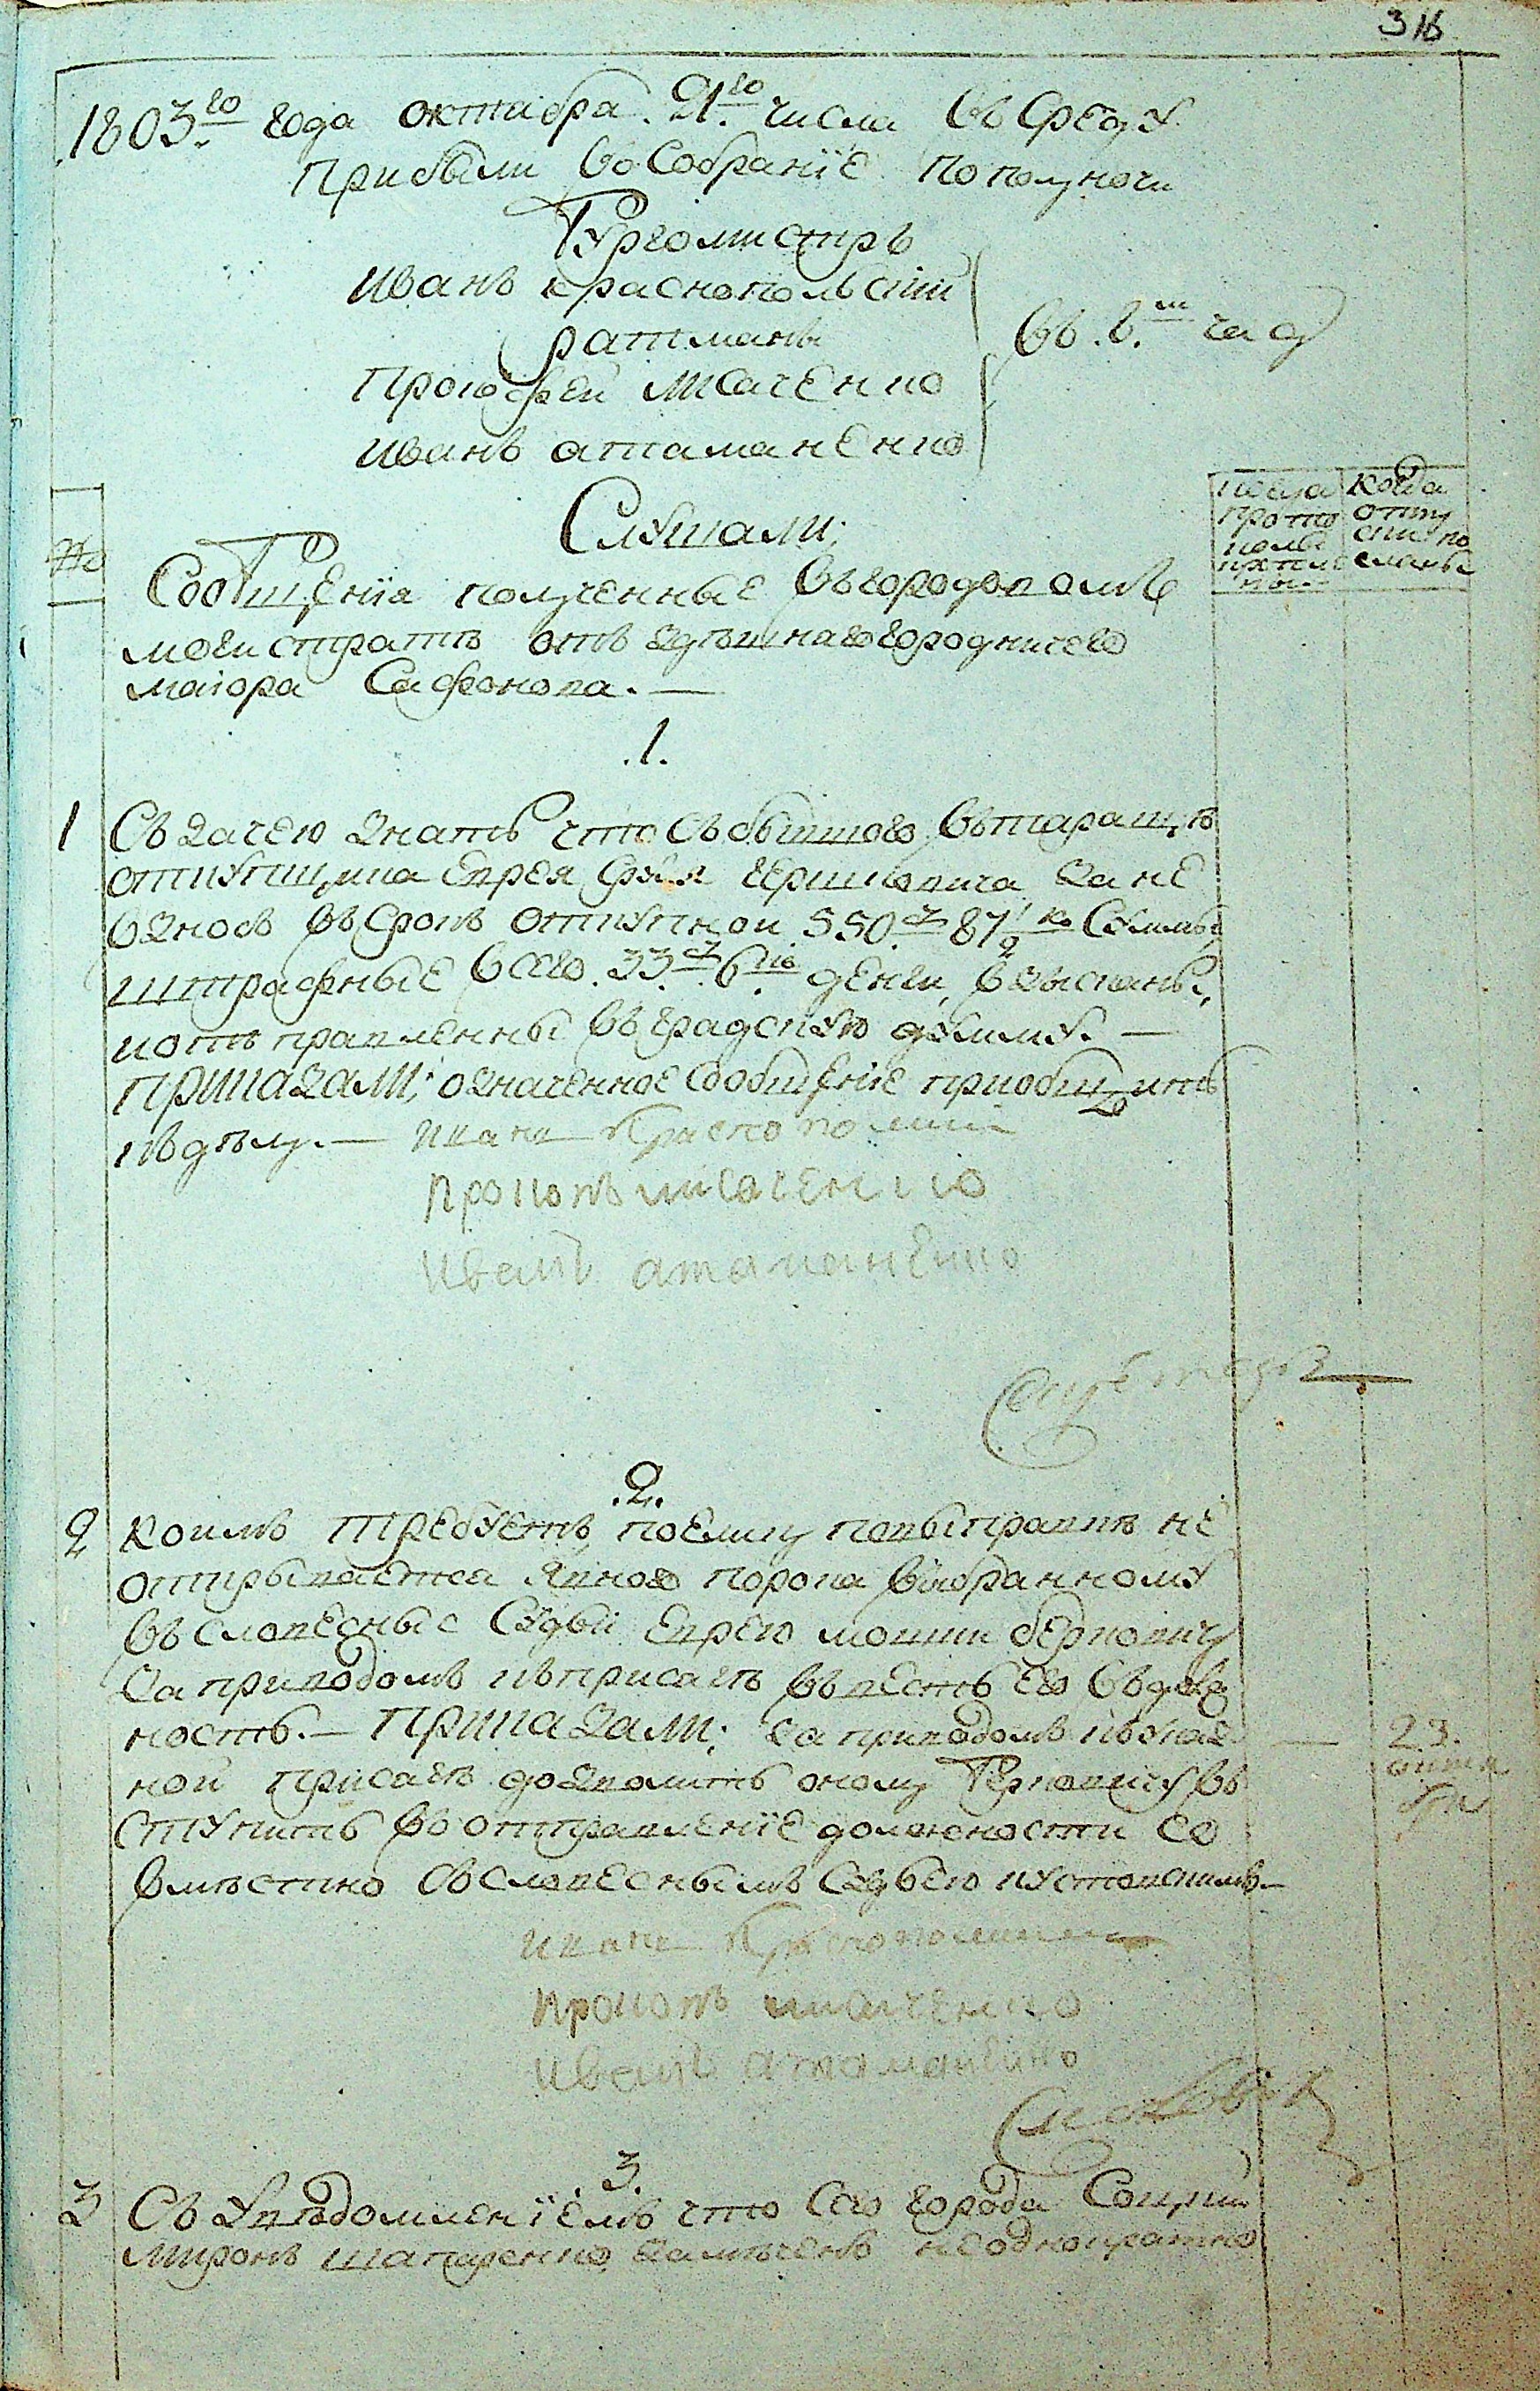 316
1803го года октября 21го числа въ Среду
Прибыли во Собранїе пополуночи
Бургомистръ
Иванъ краснопольский
ратманы
Прокофей лисаченко
Иванъ атаманенко
въ 8.м часу
Слушали;
№
когда
Сообщенїя полученные въ городовомъ
магистратѣ отъ здѣшнаго городничего
маїора Сафонова. —
.1.
1 Съ дачею знать что съ бывшого въ таращѣ
откупщика Еврея Гершковича за не
взносъ въ срокъ откупной 550 р 87 1/2 ко Суммы
штрафные всего 33 р 6 ко денги, взысканы,
и отправленны въ градскую думму. —
ПРИКАЗАЛИ; означенное сообщенїе приобщить
къ дѣлу. — Иванъ Краснополский
Прокопъ лисаченко
Иванъ атаманенко
Секретарь
.2.
2 коимъ требуетъ, поелику по выправкѣ не
открывается явного порока выбранному
въ словесные Судьи Еврею мошки берковичу
за приводомъ къ присягѣ въ весть его въ долж
ность. — ПРИКАЗАЛИ; за приводомъ къ указ
ной присягѣ дозволить оному Берковичу въ
ступить въ отправленїе должности со
вмѣстно съ словеснымъ Судьею кустовскимъ —
23.
октя
бря
Иванъ Краснополский
Прокопъ лисаченко
Иванъ атаманенко
.3.
3 Съ Увѣдомленїемъ что Сего города Соцкий
миронъ шапаренко, замѣченъ неоднократно